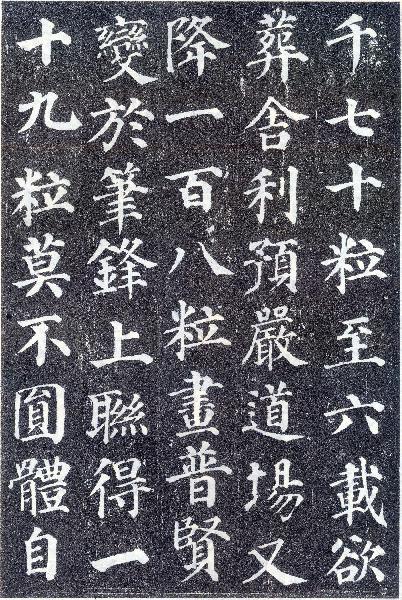 千七十粒至六載欲
葬舍利預嚴道場又
降一百八粒畫普賢
變於筆鋒上聯得一
十九粒莫不圓體自